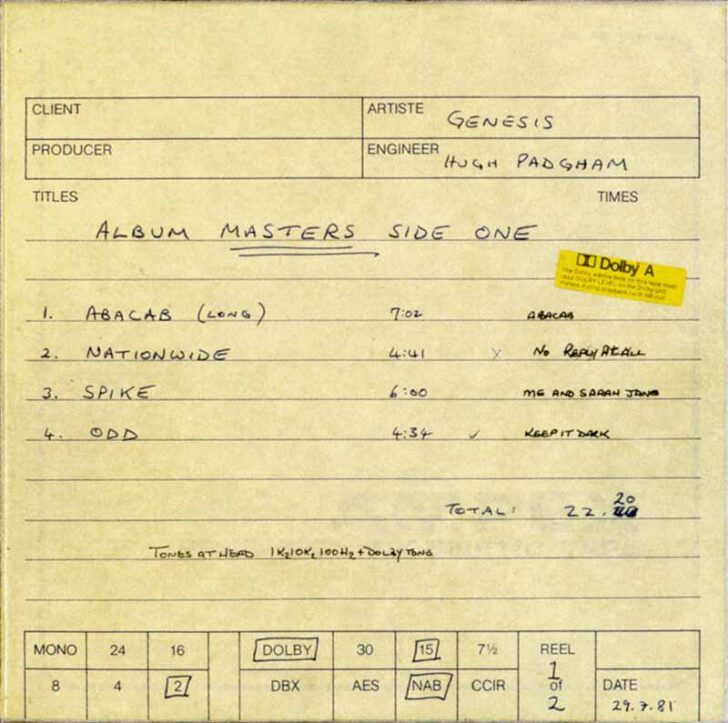 CLIENT
ARTISTE GENESIS
PRODUCER
ENGINEER HUGH PADGHAM
TITLES TIMES
ALBUM MASTERS SIDE ONE
Dolby A
The Dolby
read DOLBY LEVEL on the Dolby unit
meters during playback
1. ABACAB (LONG) 7:02 ABACAB
2. NATIONWIDE 4:41 x NO REPLY AT ALL
3. SPIKE 6:00 ME AND SARAH JANE
4. ODD 4:34 ✓ KEEP IT DARK
20
TOTAL: 22.
TONES AT HEAD 1Kz 10Kz 100Hz + DOLBY TONE
MONO 24 16 DOLBY 30 15 7½ REEL
8 4 2 DBX AES NAB CCIR 1 of 2 DATE 29.7.81